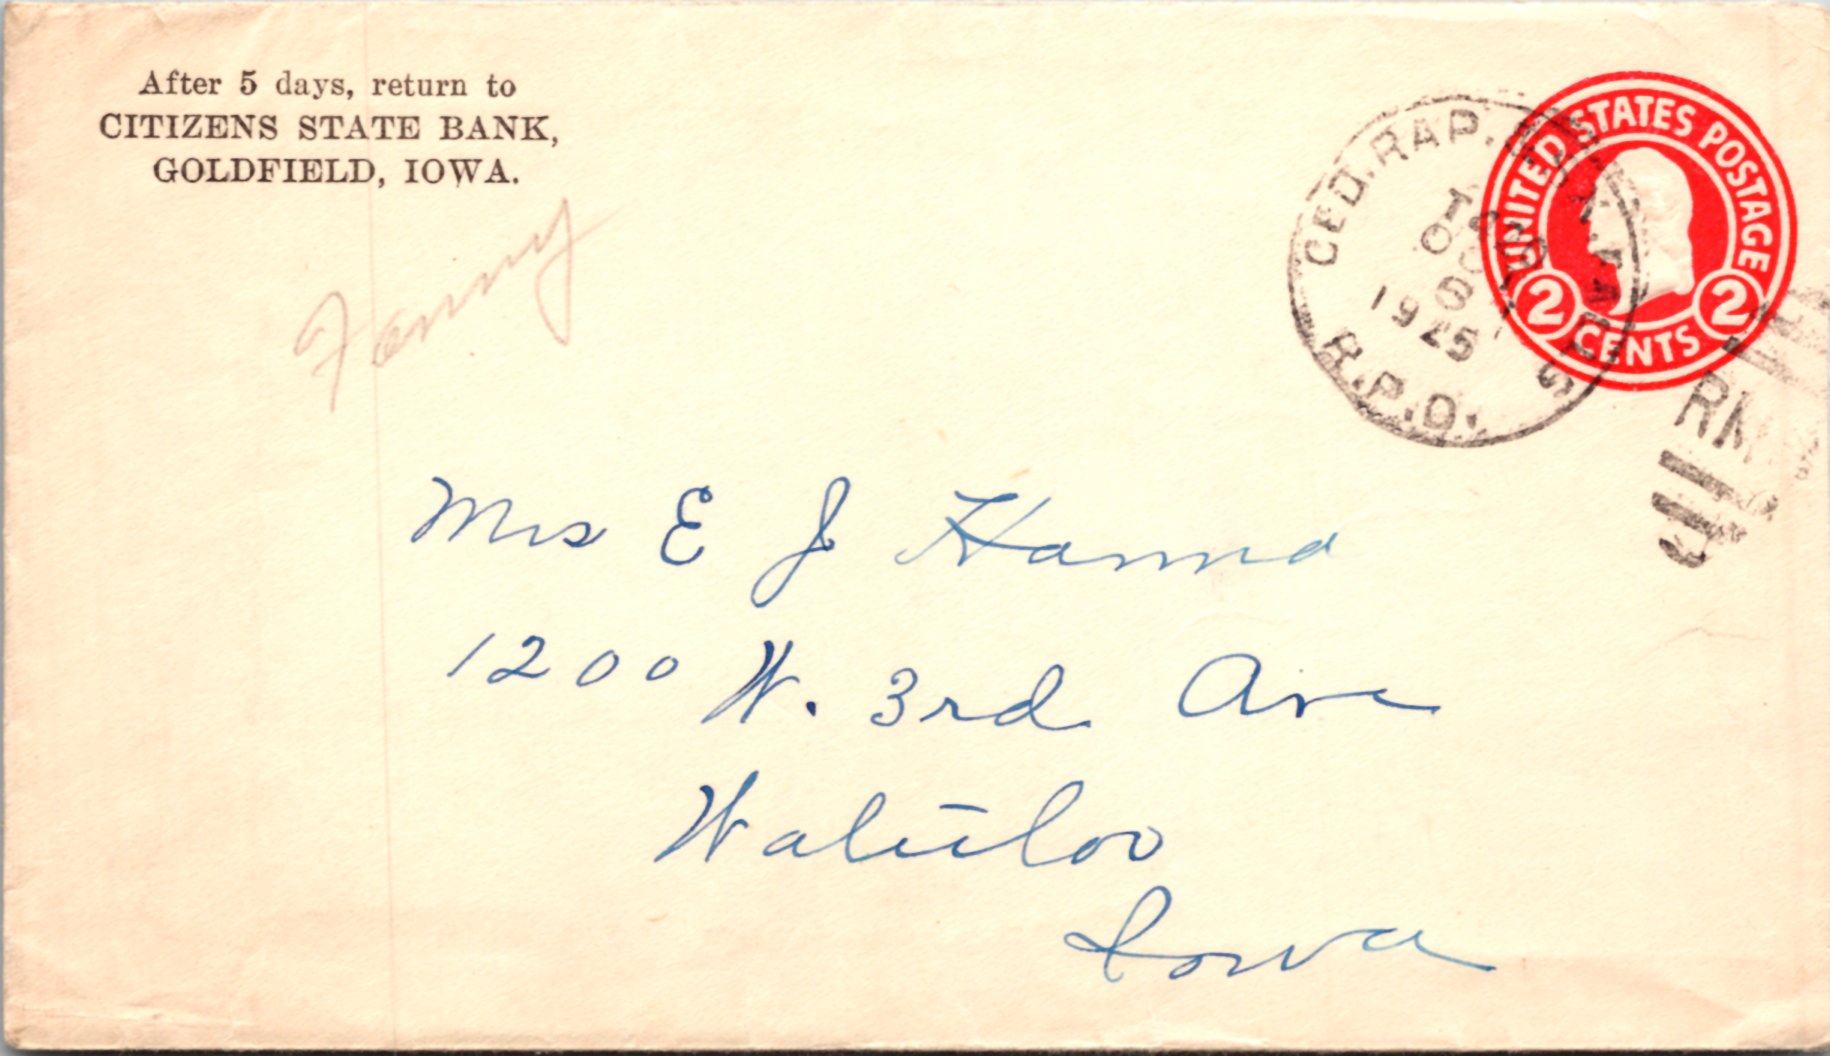 After 5 days, return to
CITIZENS STATE BANK,
GOLDFIELD, IOWA.
Fanny
UNITED STATES POSTAGE
2 CENTS 2
CED. RAP.
1925
R.P.O.
RM
Mrs E J Hanna
1200 W. 3rd Ave
Waterloo
Iowa